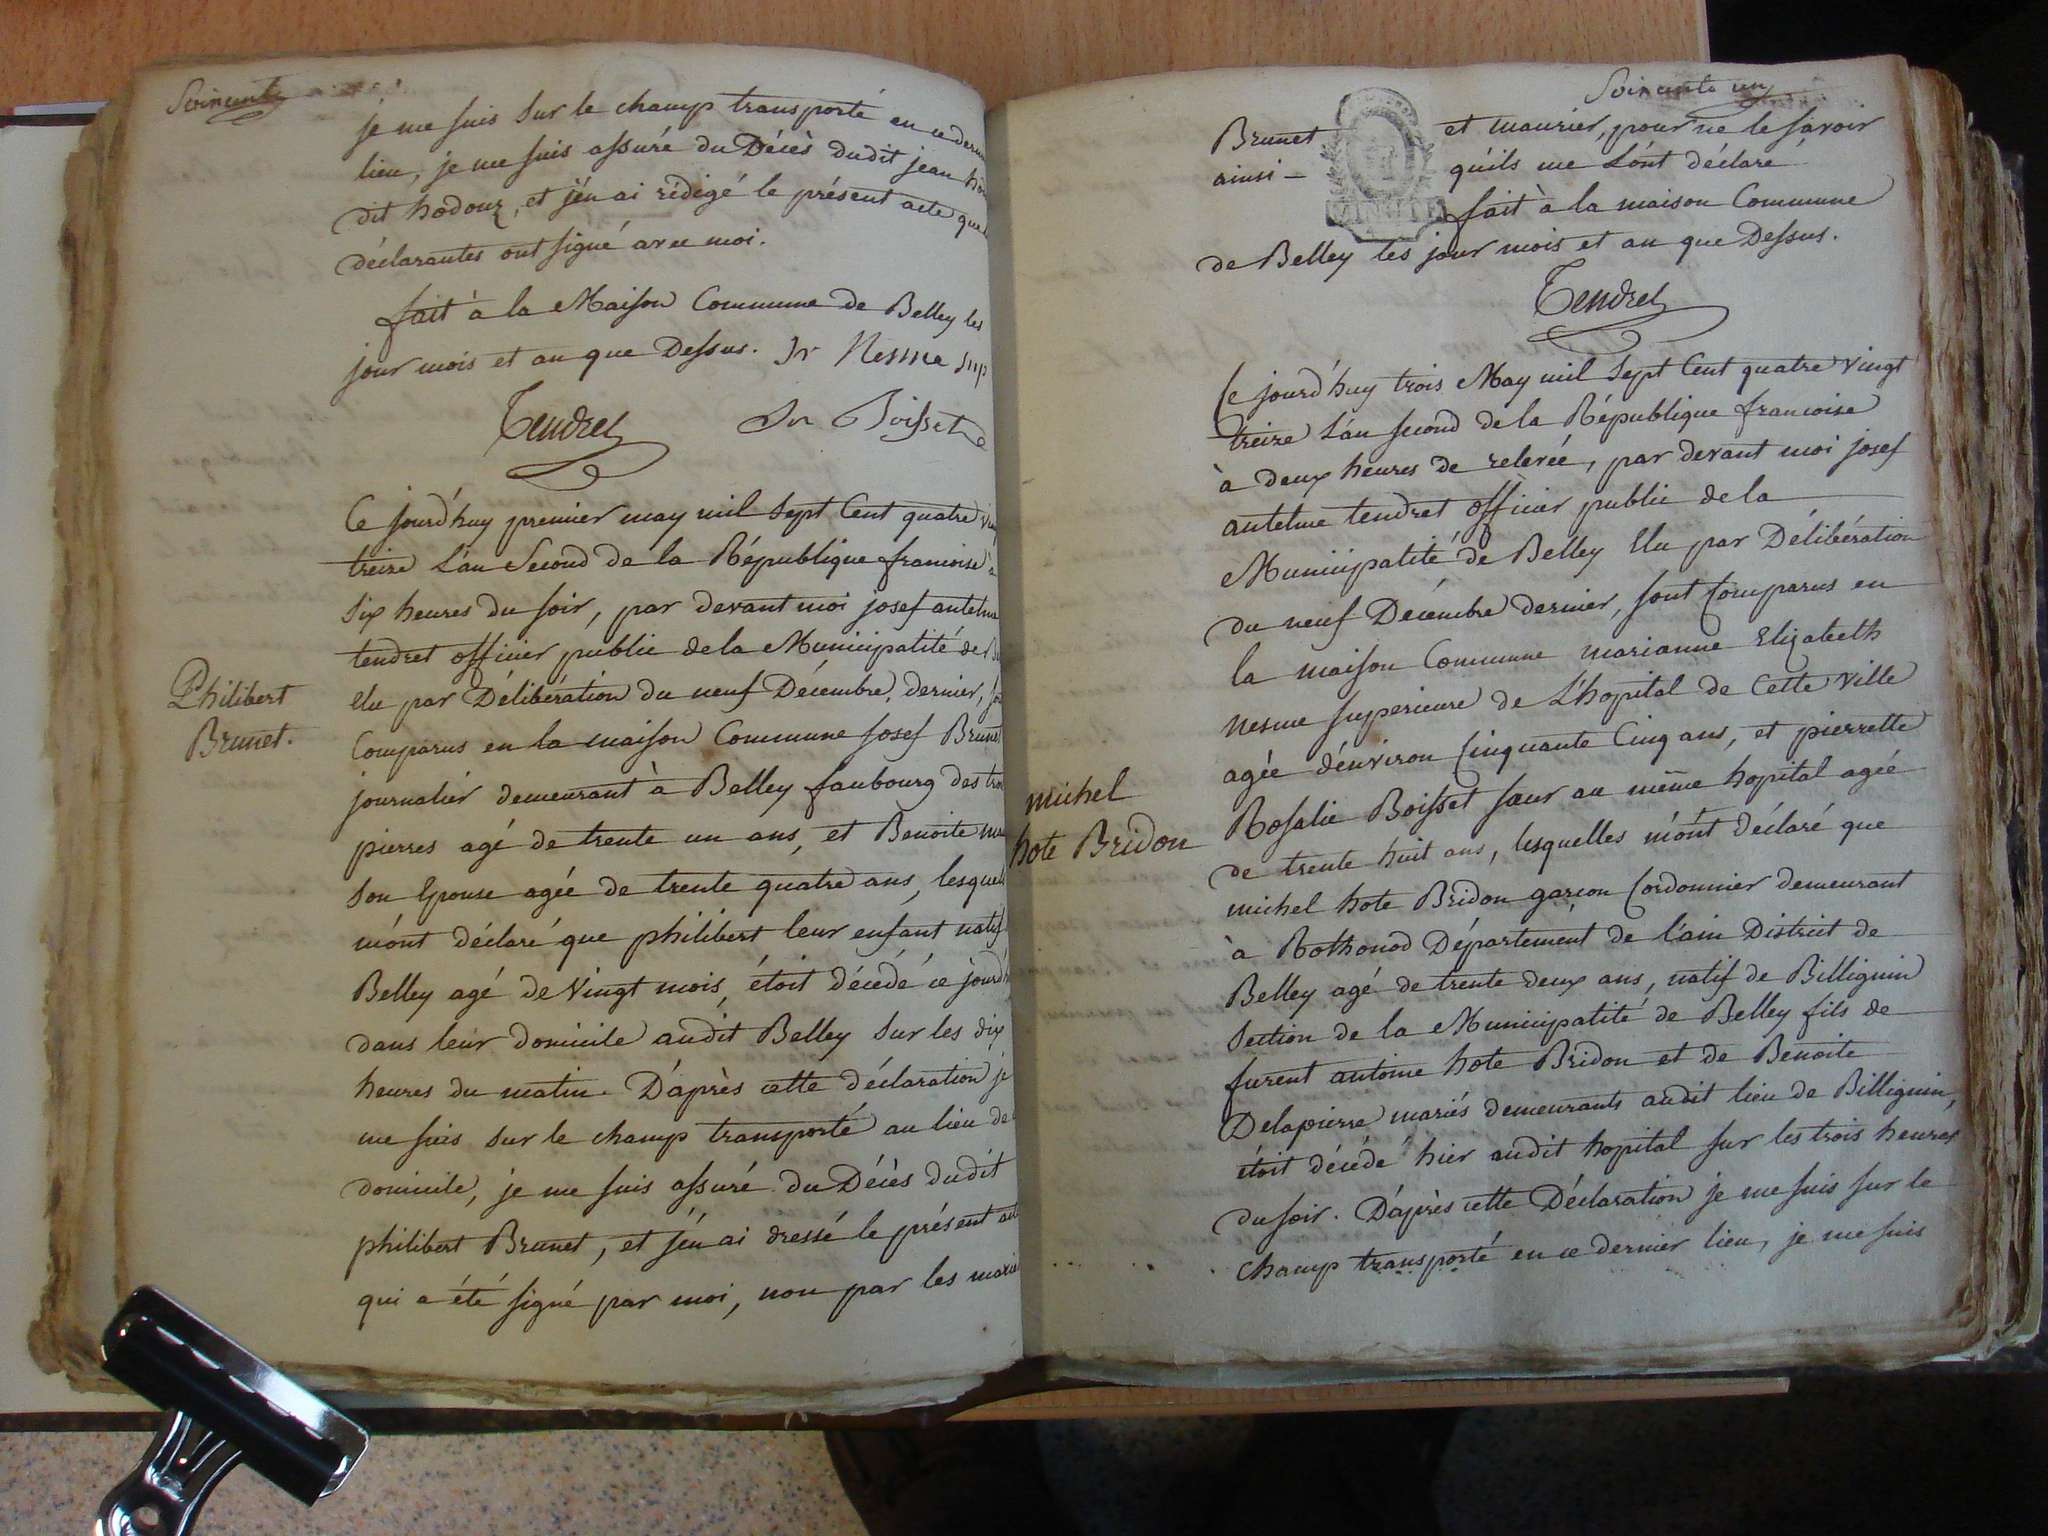 Soixante
je me suis sur le champ transporté en ce
lieu, je me suis assuré du Décès dudit jean
dit hodouz, et j'en ai rédigé le présent acte que
déclarantes ont signé avec moi.
fait à la Maison Commune de Belley les
jour mois et an que Dessus. Sr Nesme sup
Tendret Sr Boisset
Ce jourd'huy premier may mil sept Cent quatre
treize L'an Second de la République francoise à
six heures du soir, par devant moi josef antelme
tendret officier public de la Municipalité de
Philibert
Brunet.
elu par Délibération du neuf Décembre dernier,
Comparus en la maison Commune josef Brunet
journalier demeurant à Belley faubourg des
pierres agé de trente un ans, et Benoite
son Epouse agée de trente quatre ans,
m'ont déclaré que philibert leur enfant natif
Belley agé de Vingt mois, étoit décédé ce
dans leur domicile audit Belley sur les dix
heures du matin. D'après cette déclaration je
me suis sur le champ transporté au lieu de
domicile, je me suis assuré du Décès dudit
philibert Brunet, et j'en ai dressé le présent
qui a été signé par moi, non par les
Soixante un
Brunet et maurier, pour ne le savoir
ainsi – qu'ils me L'ont déclaré.
MINUTE
fait à la maison Commune
de Belley les jour mois et an que Dessus.
Tendret
Ce jourd'huy trois May mil sept Cent quatre Vingt
treize L'an second de la République francoise
à deux heures de relevée, par devant moi josef
antelme tendret officier public de la
Municipalité de Belley Elu par Délibération
du neuf Décembre dernier, sont Comparus en
la maison Commune marianne Elizabeth
nesme supérieure de L'hopital de Cette Ville
agée d'environ Cinquante Cinq ans, et pierrette
michel
hote Bridon
Rosalie Boisset sœur au même hopital agée
de trente huit ans, lesquelles m'ont déclaré que
michel hote Bridon garcon Cordonnier demeurant
à Rothonod Département de l'ain District de
Belley agé de trente deux ans, natif de Billignin
section de la Municipalité de Belley fils de
furent antoine hote Bridon et de Benoite
Delapierre mariés demeurants audit lieu de Billignin,
étoit décédé hier audit hopital sur les trois heures
du soir. D'après cette Déclaration je me suis sur le
champ transporté en ce dernier lieu, je me suis